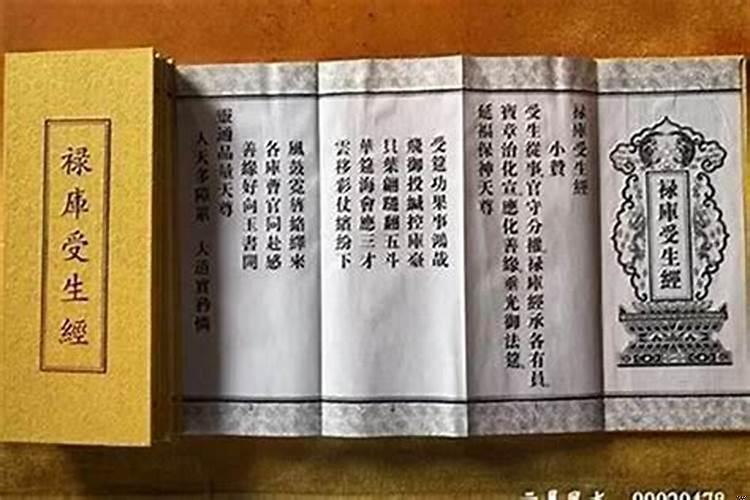 禄庫受生經
禄庫受生經
禄庫受生經
小贊
受生從事官守分權禄庫經承各有員
寶章治化宣應化善緣垂光御法筵
延福保神天尊
受筵功果事鴻哉
飛御投緘控庫臺
貝葉翩翻五斗
華筵海會應三才
雲移彩仗繽紛下
各庫曹官同赴感
善緣好向玉書開
靈通品量天尊
人天多障累 大道實矜憐